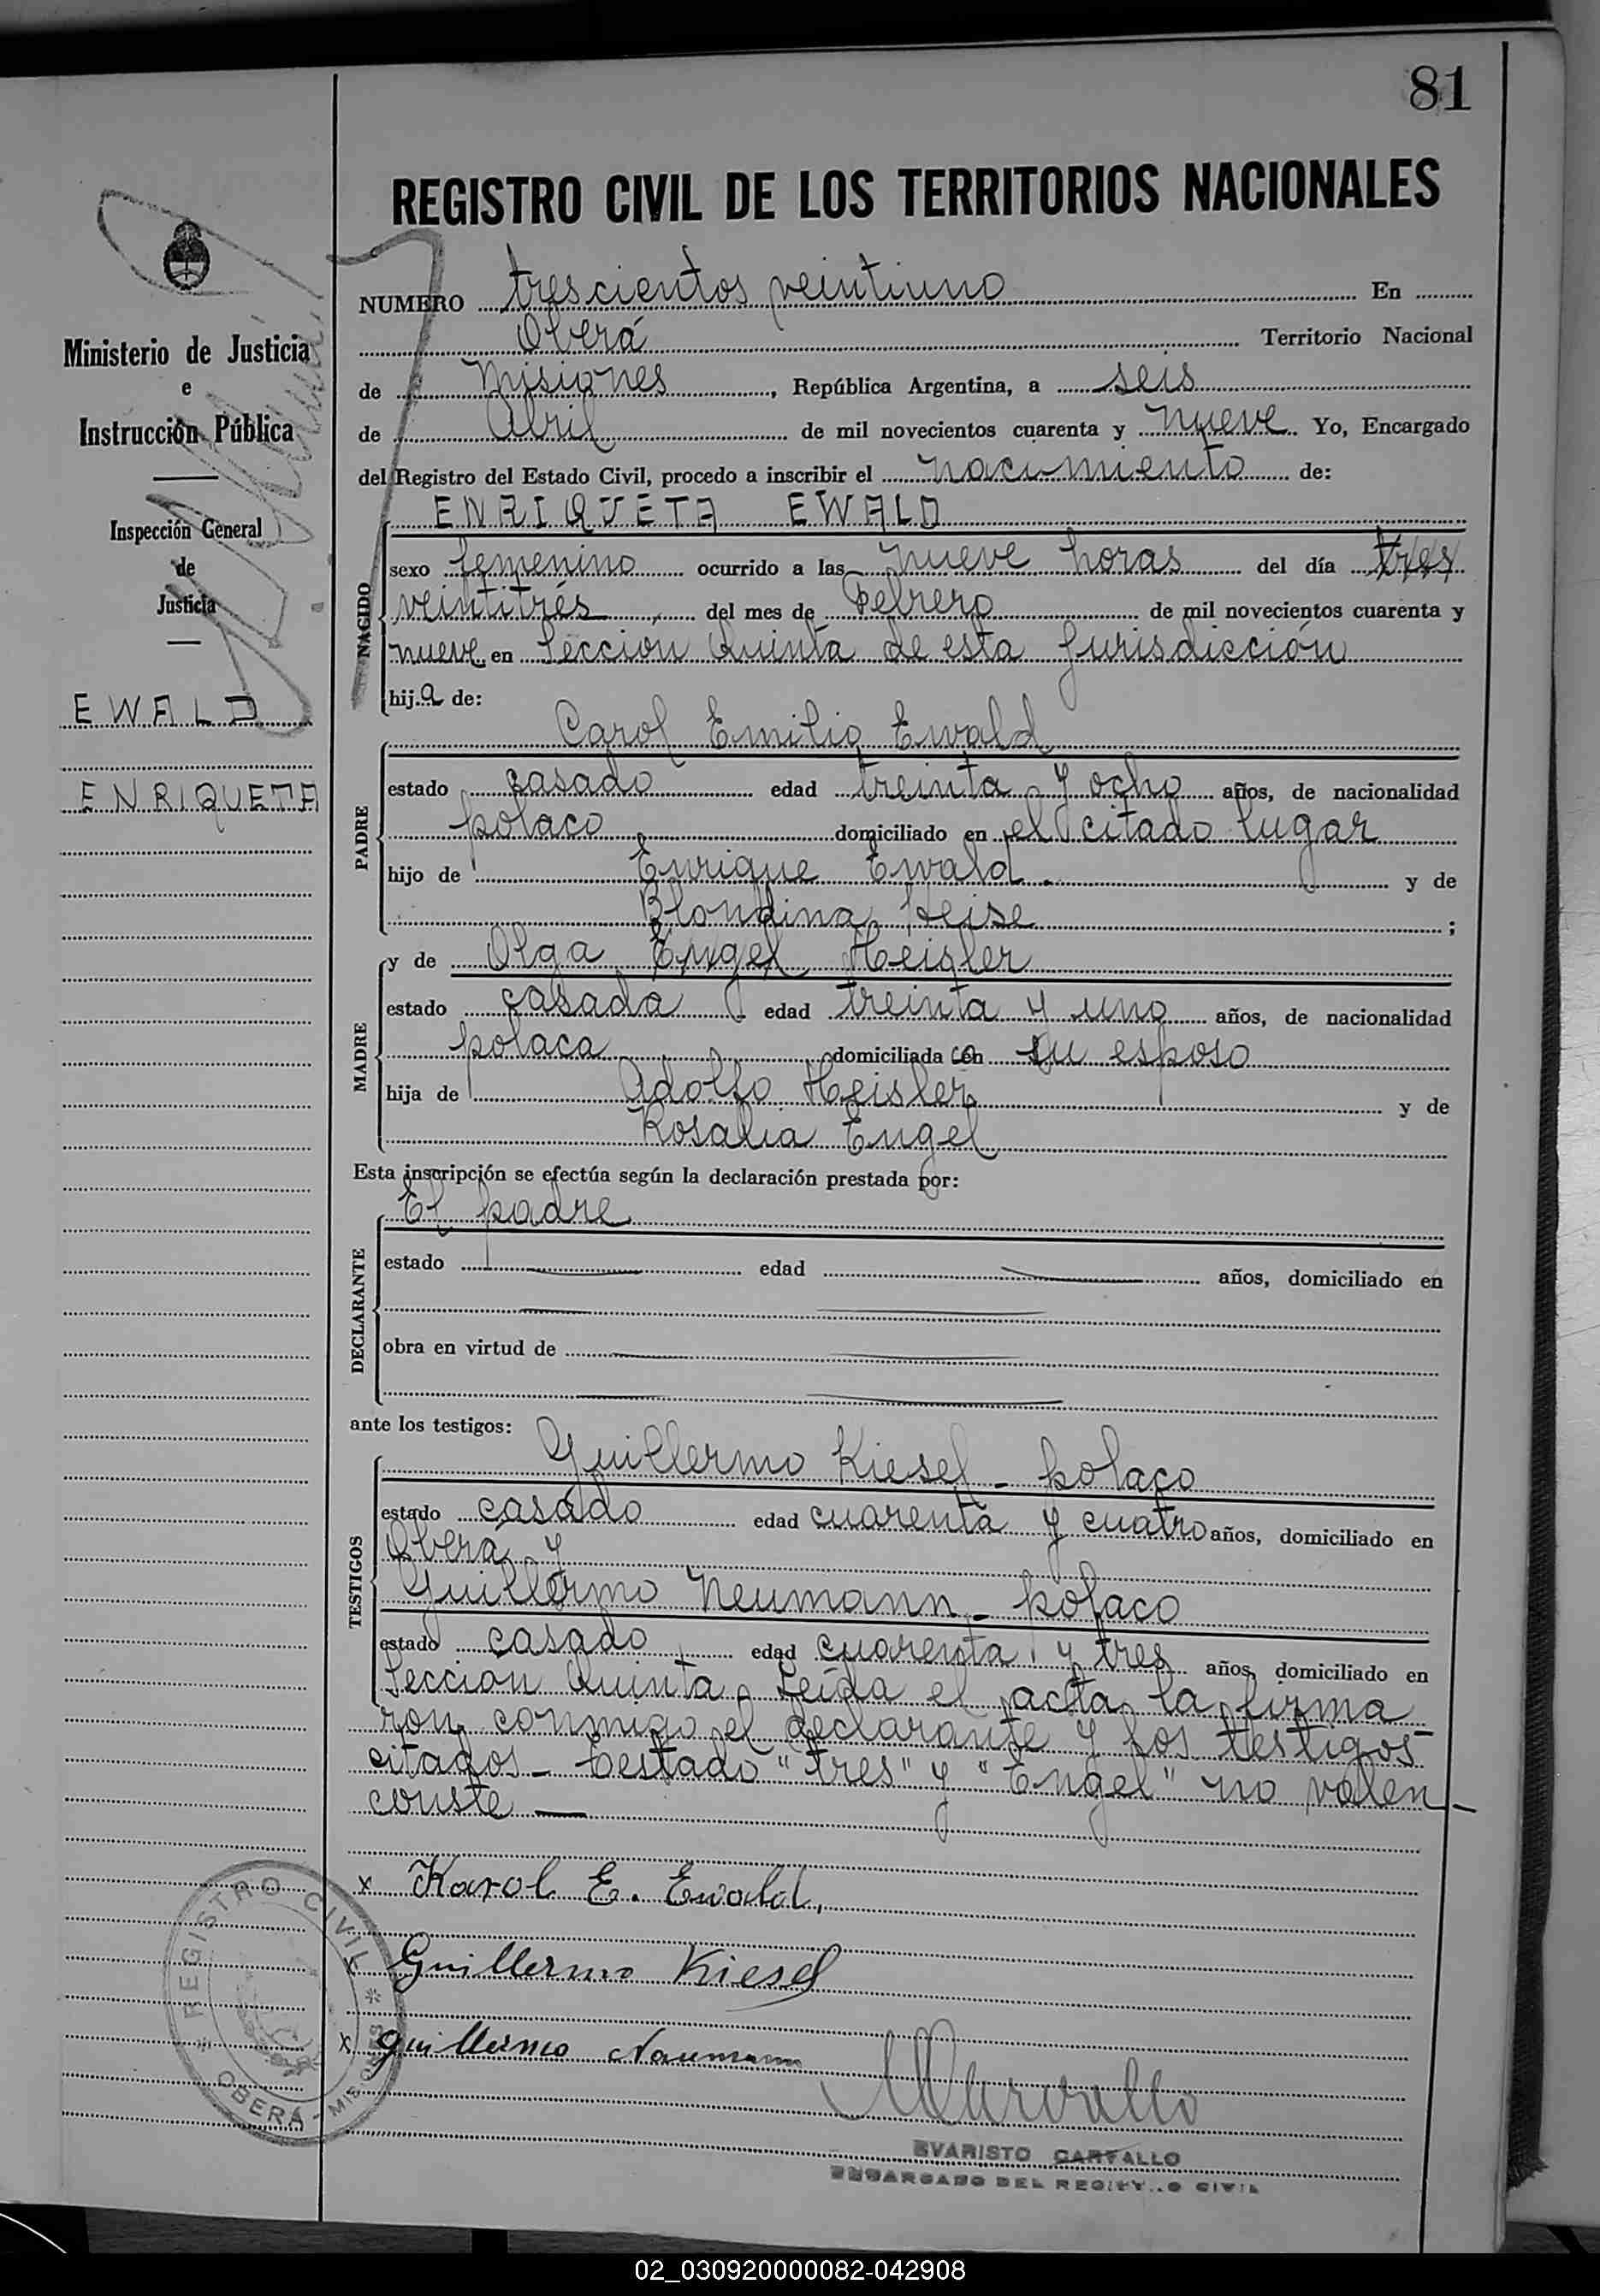 81
REGISTRO CIVIL DE LOS TERRITORIOS NACIONALES
Ministerio de Justicia
e
Instrucción Pública
Inspección General
de
Justicia
EWALD
ENRIQUETA
NUMERO trescientos veintiuno En
Oberá Territorio Nacional
de Misiones, República Argentina, a seis
de Abril de mil novecientos cuarenta y nueve Yo, Encargado
del Registro del Estado Civil, procedo a inscribir el nacimiento de:
ENRIQUETA EWALD
NACIDO
sexo femenino ocurrido a las nueve horas del día tres
veintitrés del mes de Febrero de mil novecientos cuarenta y
nueve en Sección Quinta de esta Jurisdicción
hija de:
Carol Emilio Ewald
PADRE
estado casado edad treinta y ocho años, de nacionalidad
polaco domiciliado en el citado lugar
hijo de Enrique Ewald y de
Blondina Heise ;
y de Olga Engel Heisler
MADRE
estado casada edad treinta y uno años, de nacionalidad
polaca domiciliada con su esposo
hija de Adolfo Heisler y de
Rosalia Engel
Esta inscripción se efectúa según la declaración prestada por:
El padre
DECLARANTE
estado edad años, domiciliado en
obra en virtud de
ante los testigos:
Guillermo Kiesel - polaco
TESTIGOS
estado casado edad cuarenta y cuatro años, domiciliado en
Oberá y
Guillermo Neumann - polaco
estado casado edad cuarenta y tres años, domiciliado en
Sección Quinta. Leída el acta la firma
ron conmigo el declarante y los testigos
citados - Testado "tres" y "Engel" no valen -
conste —
x Karol E. Ewald,
x Guillermo Kiesel
x guillermo Naumann
REGISTRO CIVIL * OBERÁ - MISIONES *
EVARISTO CARVALLO
ENCARGADO DEL REGISTRO CIVIL
02_030920000082-042908